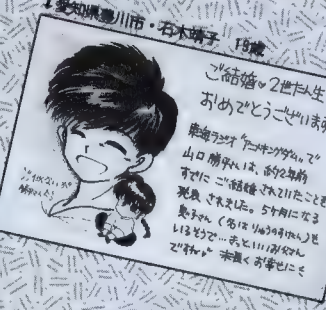 愛知県豊川市・石木晴子 19歳
ご結婚♡2世たん生
おめでとうございます
東海ラジオ"アニメキングダム"で
山口勝平さんは、約2年前
すでにご結婚されていたことを
発表されました。5ヶ月になる
息子さん(名はりゅうのすけくん)も
いるそうで…きっといいお父さん
ですね♡末長くお幸せに
似てない